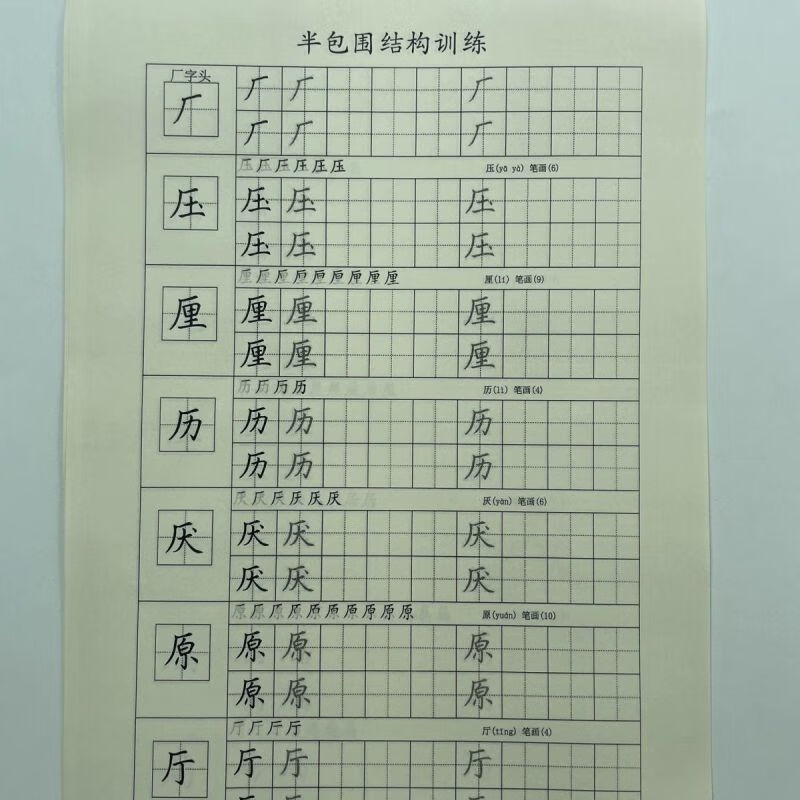 半包围结构训练
厂字头
厂 厂 厂 厂
厂 厂 厂
压 压 压 压 压 压 压(yā yà) 笔画(6)
压 压 压 压
压 压 压
厘 厘 厘 厘 厘 厘 厘 厘 厘 厘(lí) 笔画(9)
厘 厘 厘 厘
厘 厘 厘
历 历 历 历 历(lì) 笔画(4)
历 历 历 历
历 历 历
厌 厌 厌 厌 厌 厌 厌(yàn) 笔画(6)
厌 厌 厌 厌
厌 厌 厌
原 原 原 原 原 原 原 原 原 原 原(yuán) 笔画(10)
原 原 原 原
原 原 原
厅 厅 厅 厅 厅(tīng) 笔画(4)
厅 厅 厅 厅